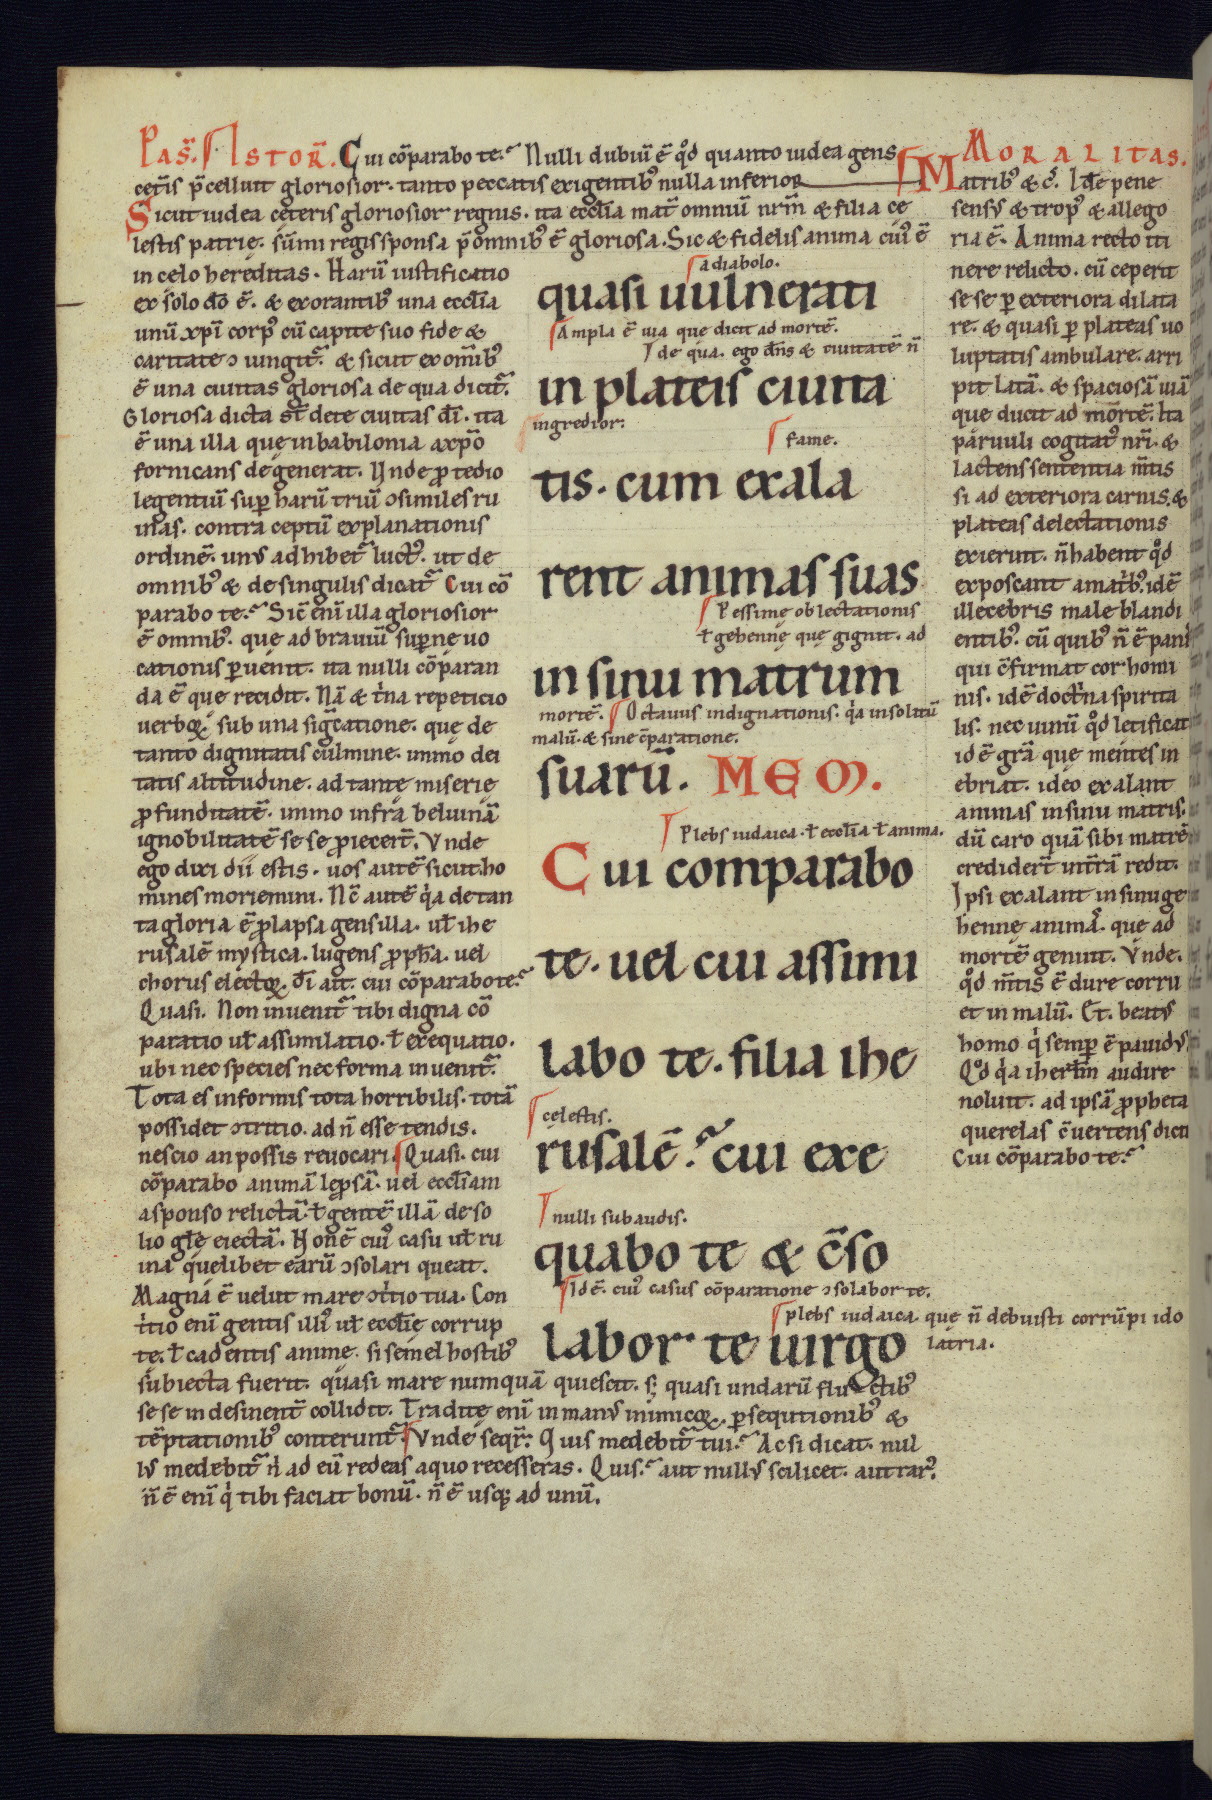 Pas̄. Istor̄. Cui cōparabo te. Nulli dubiū ē qd quanto iudea gens
cet̄is p̄celluit gloriosior. tanto peccatis exigentib; nulla inferior
Sicut iudea ceteris gloriosior regnis. ita eccl̄ia mat̄ omniū nr̄m & filia ce
lestis patrie. sūmi regis sponsa p̄ omnib; ē gloriosa. Sic & fidelis anima cui' ē
in celo hereditas. Harū iustificatio
ex solo dō ē. & exorantib; una eccl̄ia
unū xp̄i corp' cū capite suo fide &
caritate ɔiungit̄. & sicut ex om̄ib;
ē una ciuitas gloriosa de qua dicit̄.
Gloriosa dicta st̄ de te ciuitas dī. ita
ē una illa que in babilonia a xp̄o
fornicans degenerat. Unde p̱ tedio
legentiū sup̱ harū triū ɔsimiles ru
inas. contra ceptū explanationis
ordinē. un' adhibet̄ luct'. ut de
omnib; & de singulis dicat̄ Cui cō
parabo te. Sic̄ enī illa gloriosior
ē omnib;. que ad brauiū sup̱ne uo
cationis p̱uenit. ita nulli cōparan
da ē que recidit. Nā & t̄na repeticio
uerboꝝ sub una sig̅catione. que de
tanto dignitatis culmine. immo dei
tatis altitudine. ad tante miserie
p̱funditatē. immo infra beluinā
ignobilitatē se se p̱iecer̄t. Vnde
ego dixi dii estis. uos autē sicut ho
mines moriemini. Nc̄ autē q̄a de tan
ta gloria ē p̱lapsa gens illa. ut̄ ihe
rusalē mystica. lugens p̱ph̄a. uel
chorus electoꝝ dī ait. cui cōparabo te.
Quasi. Non inuenit̄ tibi digna cō
paratio ut̄ assimilatio. t̄ exequatio.
ubi nec species nec forma inuenit̄.
Tota es informis tota horribilis. totā
possidet ɔtritio. ad n̄ esse tendis.
nescio an possis reuocari. Quasi. cui
cōparabo animā lep̱sā. uel eccl̄iam
a sponso relictā. t̄ gentē illā de so
lio gl̄e eiectā. H on̄ē cui' casu ut̄ ru
ina quelibet earū ɔsolari queat.
Magna ē uelut mare ɔt̄tio tua. Con
t̄tio enī gentis illi' ut̄ eccl̄ie corrup
te. t̄ cadentis anime. si semel hostib;
subiecta fuerit. quasi mare numquā quiescit. s; quasi undarū fluctib;
se se indesinent̄ collidit. Tradite enī in man' inimicoꝝ. p̱sequtionib; &
tēptationib; conterunt̄. Vnde seqr̄. Quis medebit̄ tui. Ac si dicat. nul
l' medebit̄ n̄ ad eū redeas a quo recesseras. Quis. aut null' scilicet. aut rar'.
n̄ ē enī q̄ tibi faciat bonū. n̄ ē usq; ad unū.
a diabolo.
quasi uulnerati
Ampla ē uia que dicit ad mortē.
de qua. ego dn̄s & ciuitatē n̄
in plateis ciuita
ingredior.
fame.
tis. cum exala
rent animas suas
Pessime oblectationis
t̄ gehenne que gignit. ad
in sinu matrum
mortē. Octauus indignationis. q̄a insolitū
malū. & sine c̄paratione.
suarū. MEM.
Plebs iudaica. t̄ eccl̄ia t̄ anima.
Cui comparabo
te. uel cui assimi
labo te. filia ihe
celestis.
rusalē. cui exe
nulli subaudis.
quabo te & c̄so
Idē. cui' casus cōparatione ɔsolabor te.
plebs iudaica. que n̄ debuisti corrūpi ido
labor te uirgo
latria.
Moralitas.
Matrib; & c̄. Idē pene
sens' & trop' & allego
ria ē. Anima recto iti
nere relicto. cū ceperit
se se p̱ exteriora dilata
re. & quasi p̱ plateas uo
luptatis ambulare. arri
pit latā. & spaciosā uiā
que ducit ad mortē. Ita
paruuli cogitat' nr̄i. &
lactens sententia m̄tis
si ad exteriora carnis. &
plateas delectationis
exierint. n̄ habent qd
exposcant a mat̄b;. idē
illecebris male blandi
entib;. cū quib; n̄ ē panis
qui c̄firmat cor homi
nis. idē doct̄na spirita
lis. nec uinū qd letificat
id ē gr̄a que mentes in
ebriat. ideo exalant
animas in sinu matris.
dū caro quā sibi matrē
credider̄t int̄rā redit.
Ipsi exalant in sinu ge
henne animā. que ad
mortē genuit. Vnde.
qd m̄tis ē dure corru
et in malū. Et. beat'
homo q̄ semp̱ ē pauid'
Qd q̄a ihrl̄m audire
noluit. ad ipsā p̱pheta
querelas c̄uertens dicit
Cui cōparabo te.